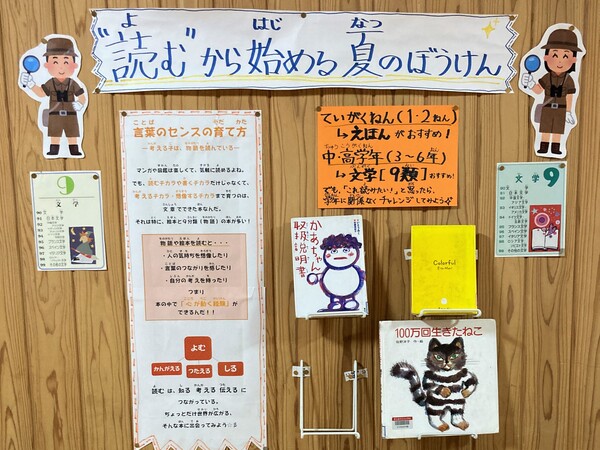 "読む"から始める夏のぼうけん
よ
はじ
なつ
言葉のセンスの育て方
ことば
そだ
かた
―考える子は、物語を読んでいる―
マンガや図鑑は楽しくて、気軽に読めるよね。
でも、読むチカラや書くチカラだけじゃなくて、
考えるチカラ・想像するチカラまで育つのは、
文章でできた本なんだ。
それは特に、絵本と9分類(物語)の本かな。
物語や絵本を読むと・・・
・人の気持ちを想像したり
・言葉のつながりを感じたり
・自分の考えを持ったり
つまり
本の中で「心が動く経験」が
できるんだ!!
よむ
かんがえる
つたえる
しる
読むは、知る 考える 伝える に
つながっている。
ちょっとだけ世界が広がる、
そんな本に出会ってみよう☆彡
ていがくねん(1・2ねん)
↳えほんがおすすめ!
中・高学年(3~6年)
↳文学[9類]おすすめ!
でも、「これ読みたい!」と思ったら、
学年に関係なくチャレンジしてみよう
9
文学
文学9
かあちゃん取扱説明書
Colorful
100万回生きたねこ
佐野洋子 作・絵